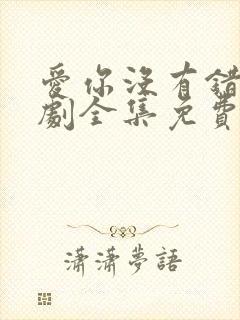 愛你沒有錯
劇全集免費
瀟瀟夢語